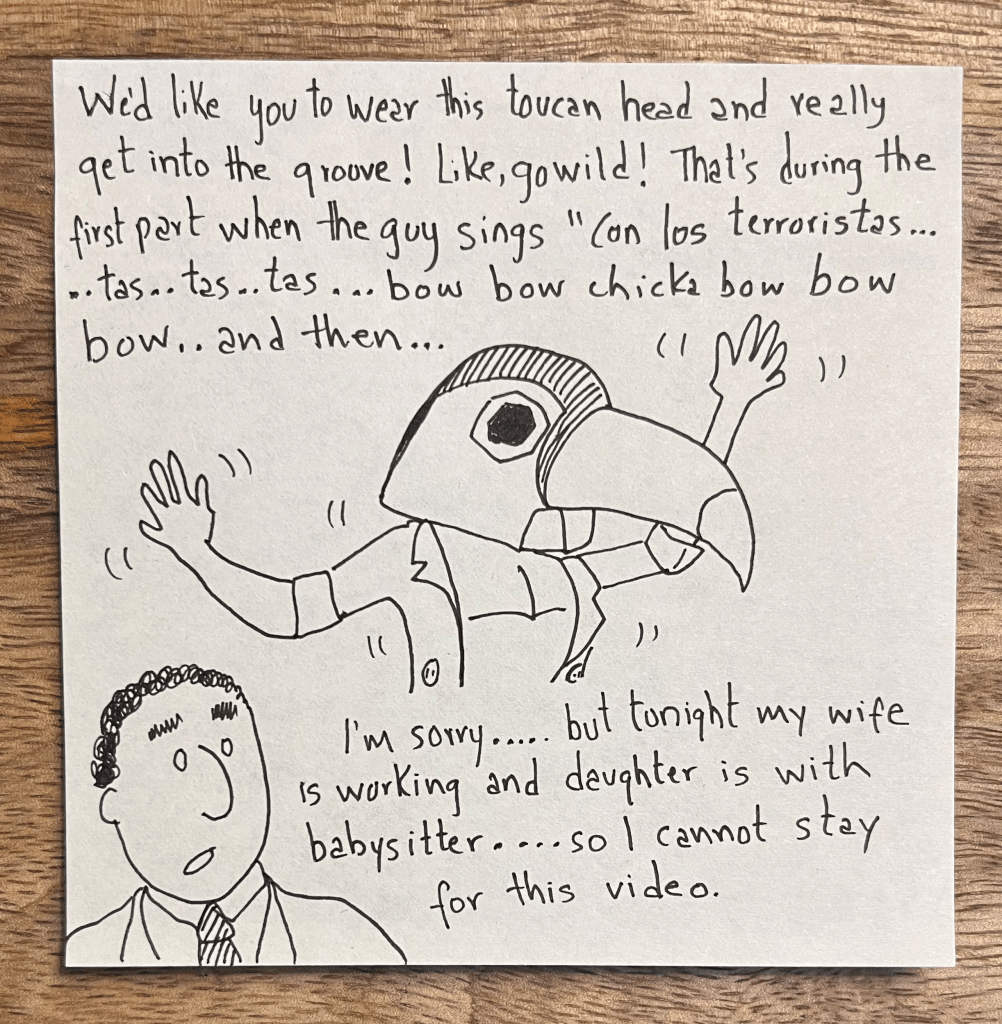 We'd like you to wear this toucan head and really
get into the groove! Like, go wild! That's during the
first part when the guy sings "Con los terroristas...
...tas...tas...tas....bow bow chicka bow bow
bow.. and then...
I'm sorry..... but tonight my wife
is working and daughter is with
babysitter.....so I cannot stay
for this video.